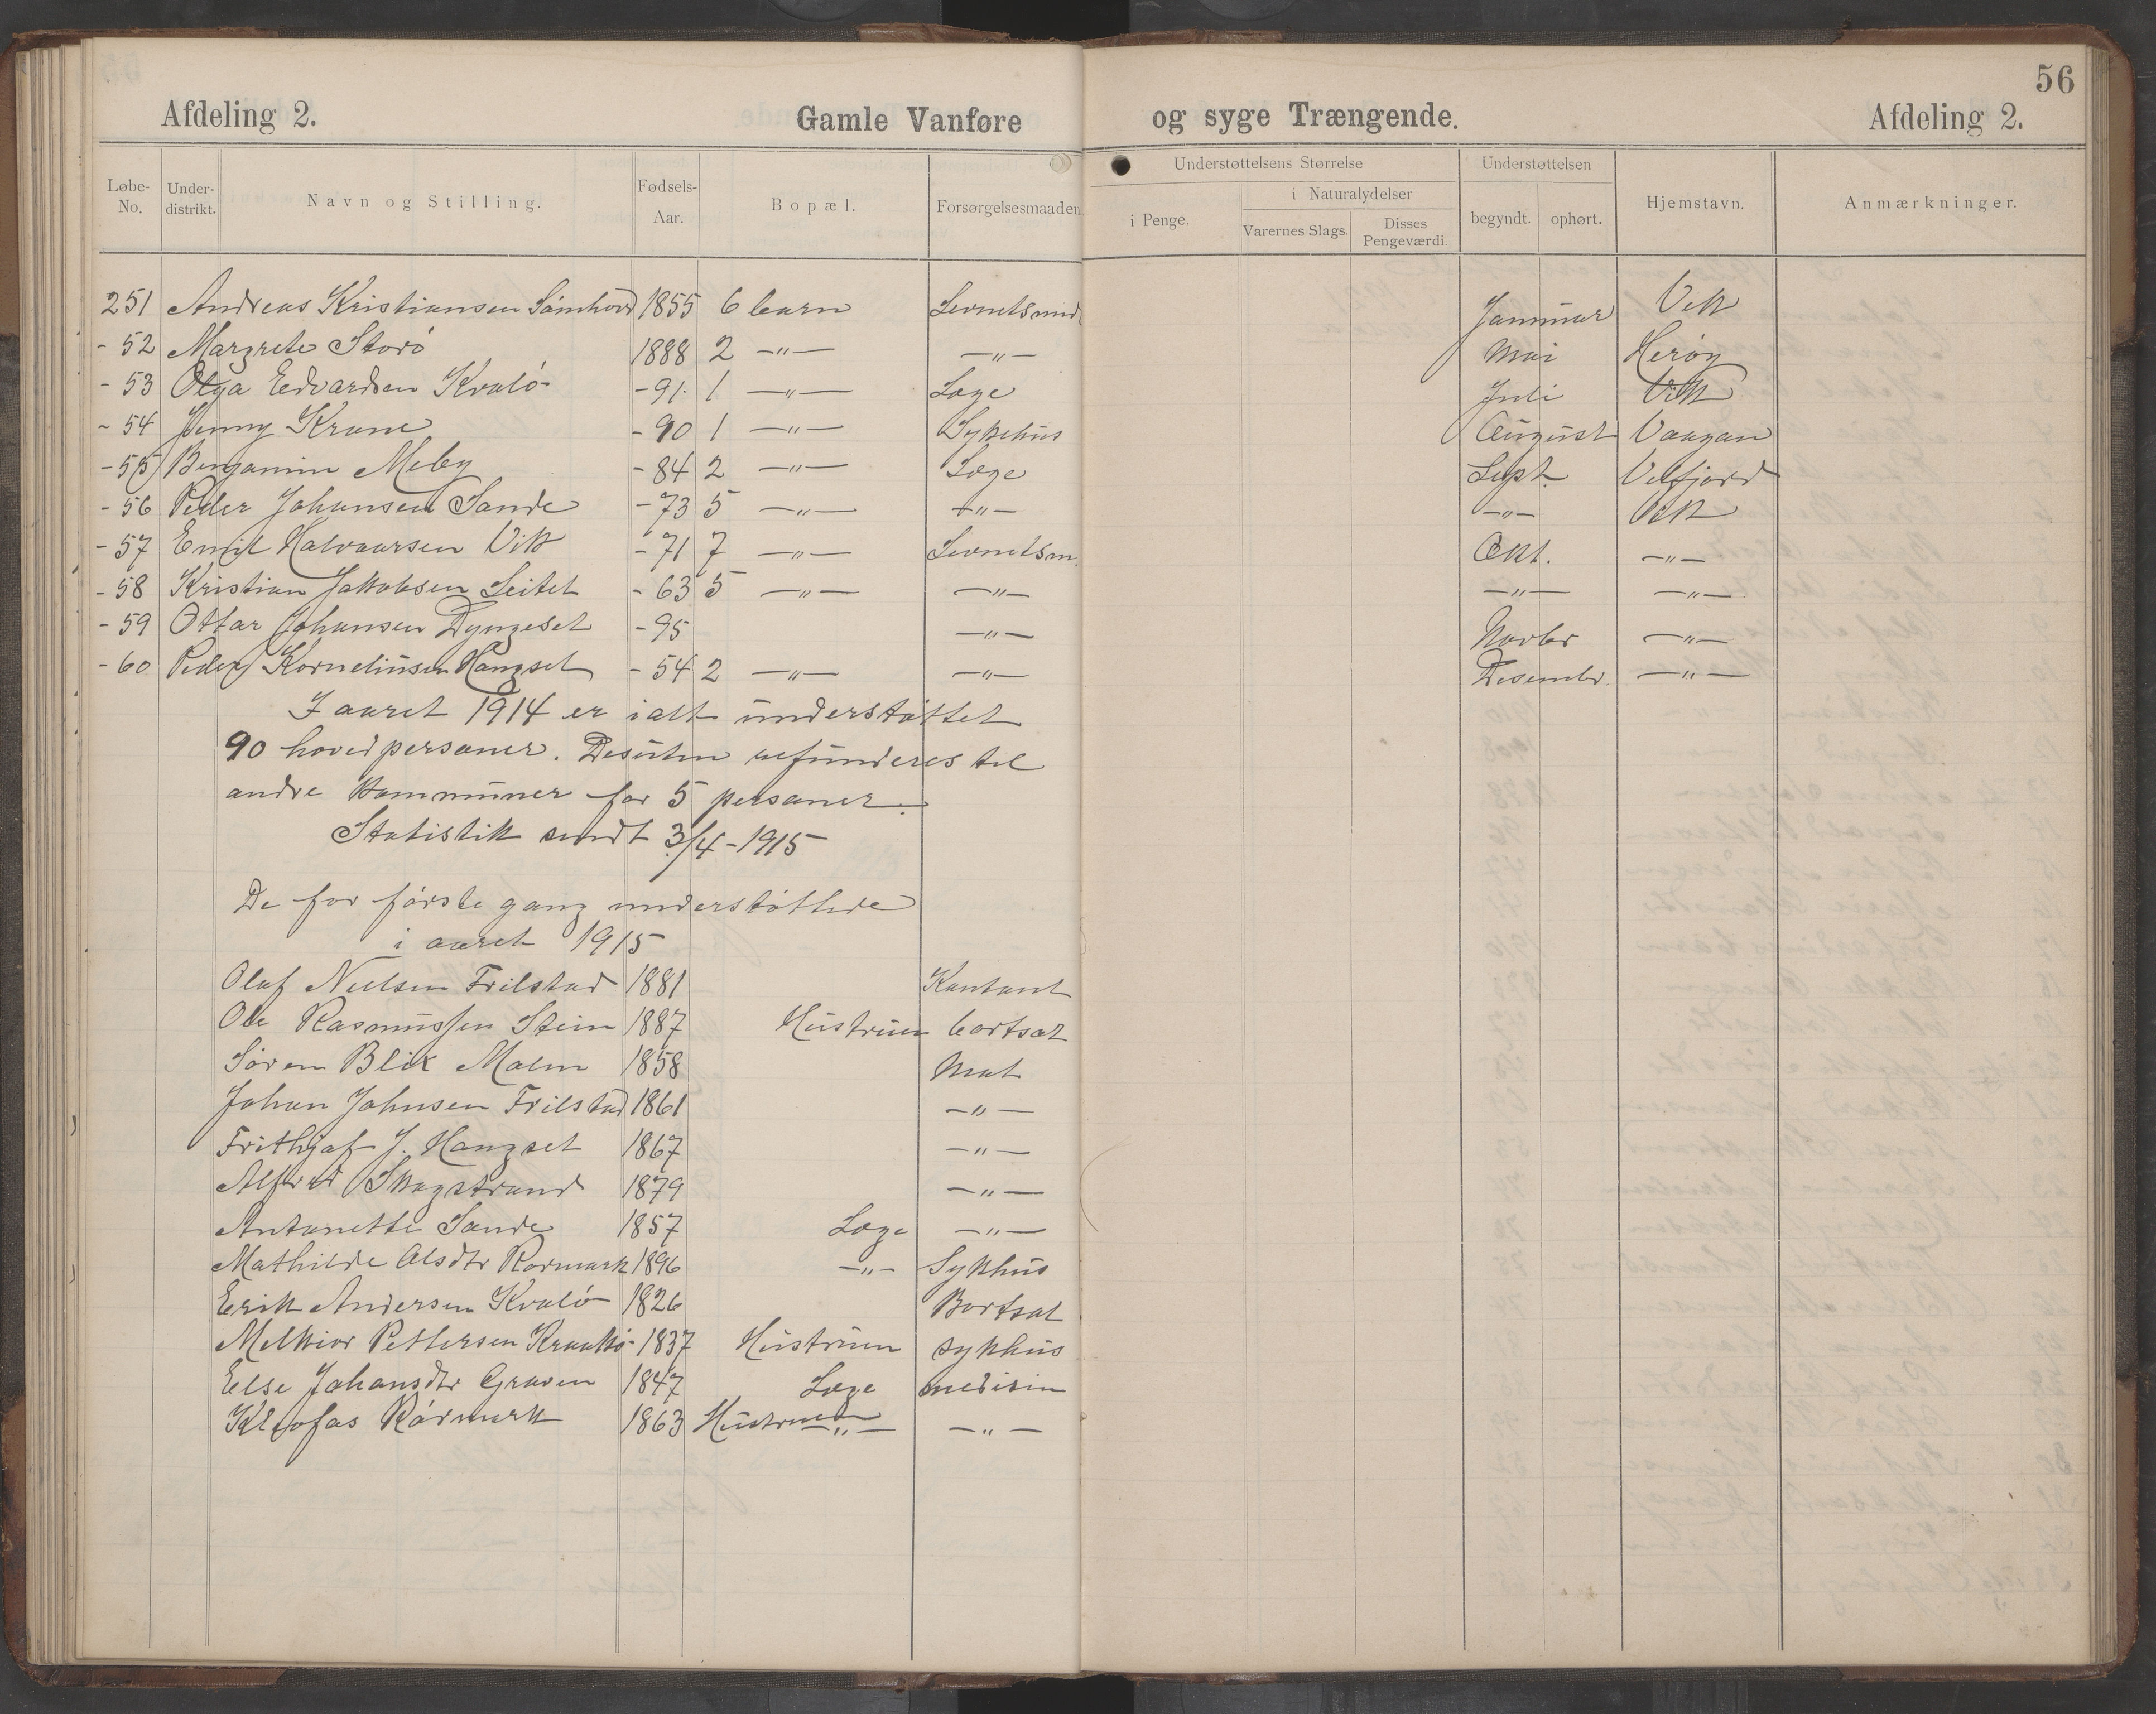 56
Afdeling 2. Gamle Vanføre og syge Trængende. Afdeling 2.
Løbe-No. Under-distrikt. Navn og Stilling. Fødsels-Aar. Bopæl. Forsørgelsesmaaden Understøttelsens Størrelse i Penge. i Naturalydelser Varernes Slags. Disses Pengeværdi. Understøttelsen begyndt. ophørt. Hjemstavn. Anmærkninger.
251 Andreas Kristiansen Sömhovd 1855 6 barn Levnetsmid Januuar Vik
- 52 Margrete Storö 1888 2 —"— —"— Mai Herøy
- 53 Olga Edvardsen Kvalö - 91. 1 —"— Læge Juli Vik
- 54 Jenny Krane - 90 1 —"— Sykehus August Vaagan
- 55 Benjamin Meby - 84 2 —"— Læge Sept. Velfjord
- 56 Peder Johansen Sande - 73 5 —"— —"— —"— Vik
- 57 Emil Halvaarsen Vik - 71 7 —"— Levnetsm. Okt. —"—
- 58 Kristian Jakobsen Leitet - 63 5 —"— —"— —"— —"—
- 59 Ottar Johansen Dyngeset - 95 —"— Novbr —"—
- 60 Peder Kornelinsen Hangset - 54 2 —"— —"— Desembr. —"—
I aaret 1914 er ialt understøttet
90 hovedpersoner. Desuten refunderes til
andre kommuner for 5 personer.
Statistik sendt 3/4 - 1915
De for første gang understøttede
i aaret 1915
Olaf Nielsen Frilstad 1881 Kontant
Ole Rasmussen Stein 1887 Hustruen bortsat
Sören Blix Malm 1858 Mat
Johan Johnsen Frilstad 1861 —"—
Frithjof J. Hangset 1867 —"—
Alfred Skagstrand 1879 —"—
Antonette Sande 1857 Læge —"—
Mathilde Olsdtr Rormark 1896 —"— Sykhus
Erik Andersen Kvalö 1826 Bortsat
Melkior Pettersen Kraakö 1837 Hustruen sykhus
Else Johansdtr Graven 1847 Læge medisin
Kleofas Rörmark 1863 Hustruen —"— —"—